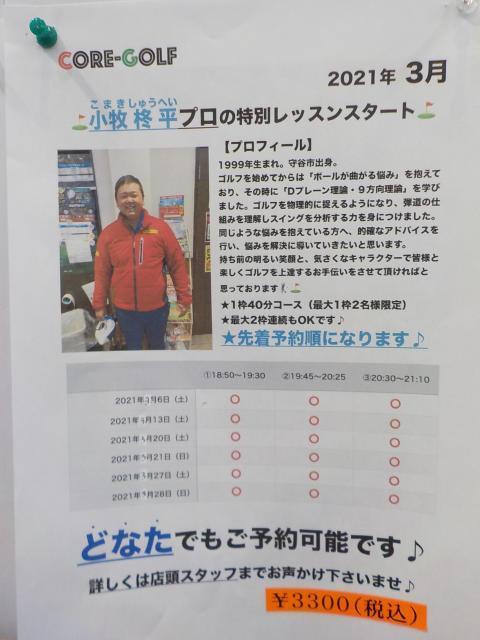 CORE-GOLF
2021年 3月
こまきしゅうへい
小牧 柊 平プロの特別レッスンスタート
【プロフィール】
1999年生まれ。守谷市出身。
ゴルフを始めてからは「ボールが曲がる悩み」を抱えて
おり、その時に「Dプレーン理論・9方向理論」を学び
ました。ゴルフを物理的に捉えるようになり、弾道の仕
組みを理解しスイングを分析する力を身につけました。
同じような悩みを抱えている方へ、的確なアドバイスを
行い、悩みを解決に導いていきたいと思います。
持ち前の明るい笑顔と、気さくなキャラクターで皆様と
楽しくゴルフを上達するお手伝いをさせて頂ければと
思っております
★1枠40分コース（最大1枠2名様限定）
★最大2枠連続もOKです♪
★先着予約順になります♪
①18:50〜19:30 ②19:45〜20:25 ③20:30〜21:10
2021年3月6日（土） ○ ○ ○
2021年3月13日（土） ○ ○ ○
2021年3月20日（土） ○ ○ ○
2021年3月21日（日） ○ ○ ○
2021年3月27日（土） ○ ○ ○
2021年3月28日（日） ○ ○ ○
どなたでもご予約可能です♪
詳しくは店頭スタッフまでお声かけ下さいませ♪
¥3300(税込)